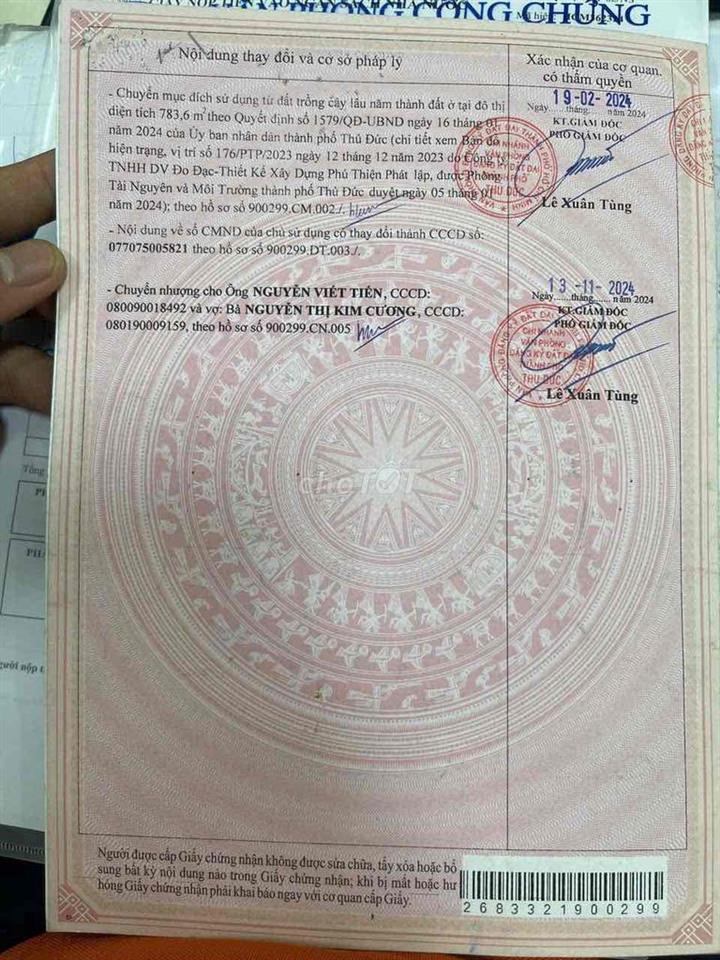 VĂN PHÒNG CÔNG CHỨNG
Mã hiệ
Nội dung thay đổi và cơ sở pháp lý
Xác nhận của cơ quan
có thẩm quyền
- Chuyển mục đích sử dụng từ đất trồng cây lâu năm thành đất ở tại đô thị
diện tích 783,6 m² theo Quyết định số 1579/QĐ-UBND ngày 16 tháng 01
năm 2024 của Ủy ban nhân dân thành phố Thủ Đức (chi tiết xem Bản đồ
hiện trạng, vị trí số 176/PTP/2023 ngày 12 tháng 12 năm 2023 do Công ty
TNHH DV Đo Đạc-Thiết Kế Xây Dựng Phú Thiện Phát lập, được Phòng
Tài Nguyên và Môi Trường thành phố Thủ Đức duyệt ngày 05 tháng 01
năm 2024); theo hồ sơ số 900299.CM.002./.
- Nội dung về số CMND của chủ sử dụng có thay đổi thành CCCD số:
077075005821 theo hồ sơ số 900299.DT.003./.
19-02- 2024
Ngày tháng năm 2024
KT.GIÁM ĐỐC
PHÓ GIÁM ĐỐC
THỦ ĐỨC
Lê Xuân Tùng
- Chuyển nhượng cho Ông NGUYỄN VIẾT TIẾN, CCCD:
080090018492 và vợ: Bà NGUYỄN THỊ KIM CƯƠNG, CCCD:
080190009159, theo hồ sơ số 900299.CN.005
13 -11- 2024
Ngày......tháng...... năm 2024
KT.GIÁM ĐỐC
PHÓ GIÁM ĐỐC
CHI NHÁNH
VĂN PHÒNG
ĐĂNG KÝ ĐẤT ĐAI
THÀNH PHỐ
THỦ ĐỨC
Lê Xuân Tùng
choTỐT
Tổng
PH
PHẦ
gười nộp t
Người được cấp Giấy chứng nhận không được sửa chữa, tẩy xóa hoặc bổ
sung bất kỳ nội dung nào trong Giấy chứng nhận; khi bị mất hoặc hư
hỏng Giấy chứng nhận phải khai báo ngay với cơ quan cấp Giấy.
268332190029​9